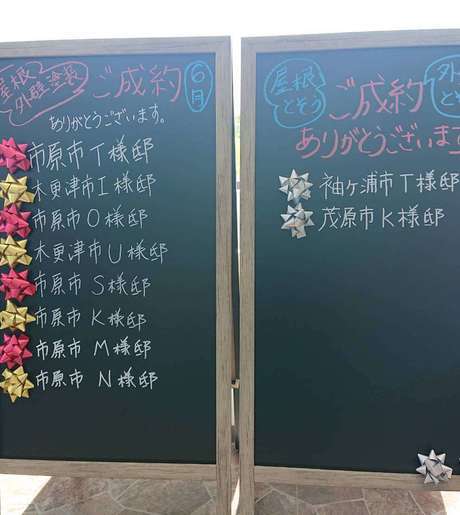 屋根
外壁塗装
ご成約
6月
ありがとうございます。
市原市T様邸
木更津市I様邸
市原市O様邸
木更津市U様邸
市原市S様邸
市原市K様邸
市原市M様邸
市原市N様邸
屋根
とそう
ご成約
外
とそ
ありがとうございます
袖ケ浦市T様邸
茂原市K様邸